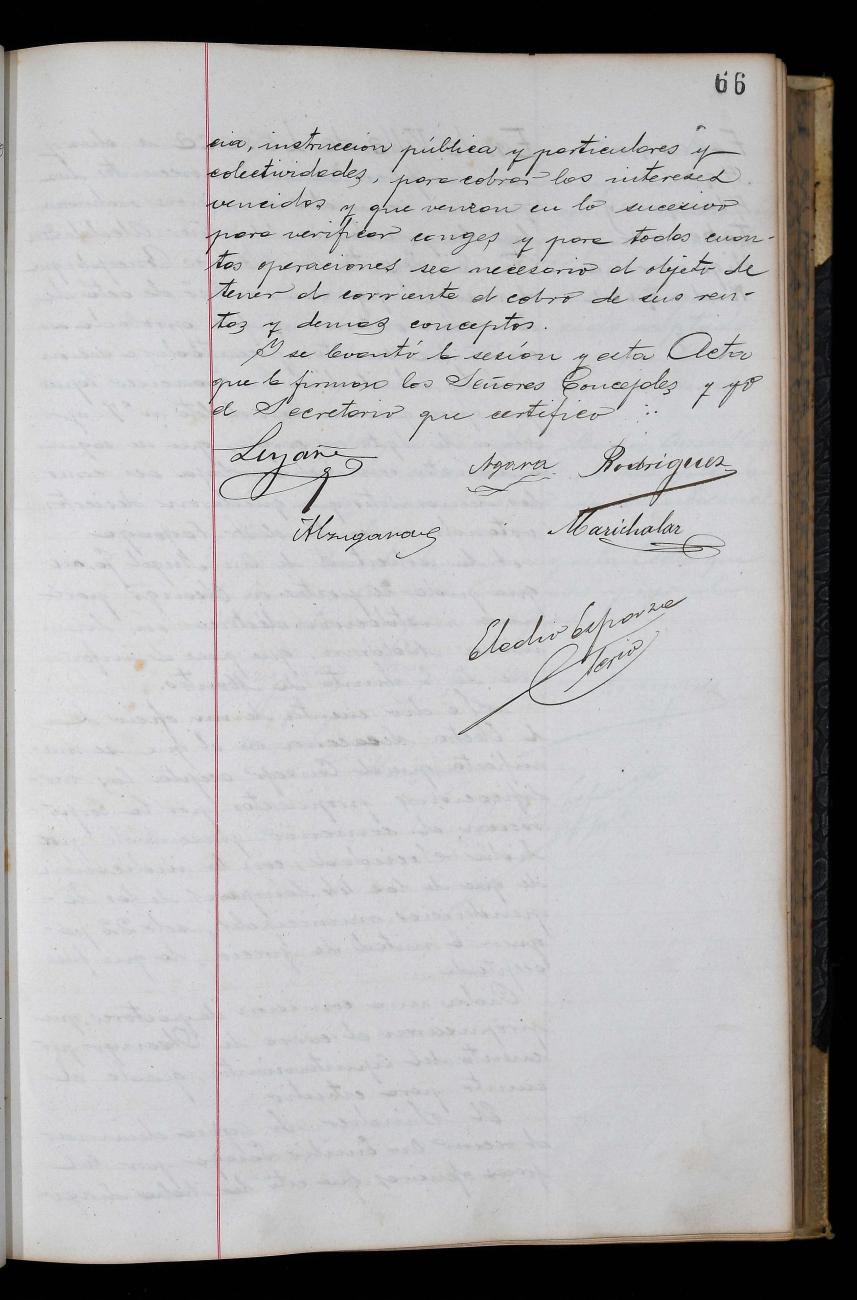 66
cia, instruccion pública y particulares y
colectividades, para cobrar los intereses
vencidos y que venzan en lo sucesivo
para verificar canges y para todas cuan-
tas operaciones sea necesario al objeto de
tener al corriente el cobro de sus ren-
tas y demas conceptos.
Y se levantó la sesión y esta Acta
que la firman los Señores Concejales y yo
el Secretario que certifico
Luyañe
Agara Rodriguez
Alzugaray
Marichalar
Eladio Esparza
Serio